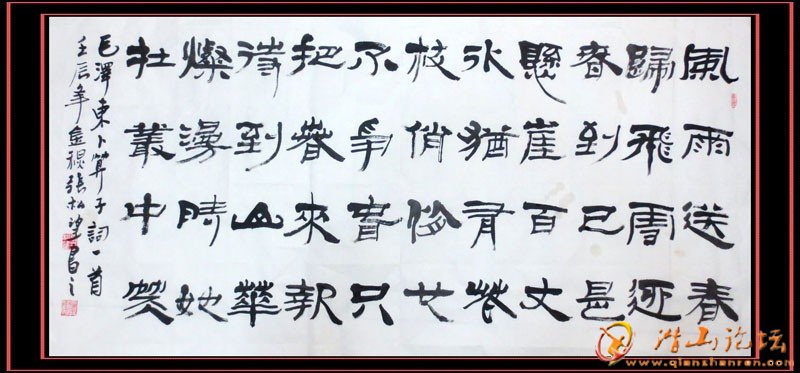 風雨送春
歸飛雪迎
春到已是
懸崖百丈
冰猶有花
枝俏俏也
不爭春只
把春來報
待到山華
燦漫時她
在叢中笑
毛澤東卜算子詞一首
壬辰年張松望書之
潜山论坛
www.qianshanren.com